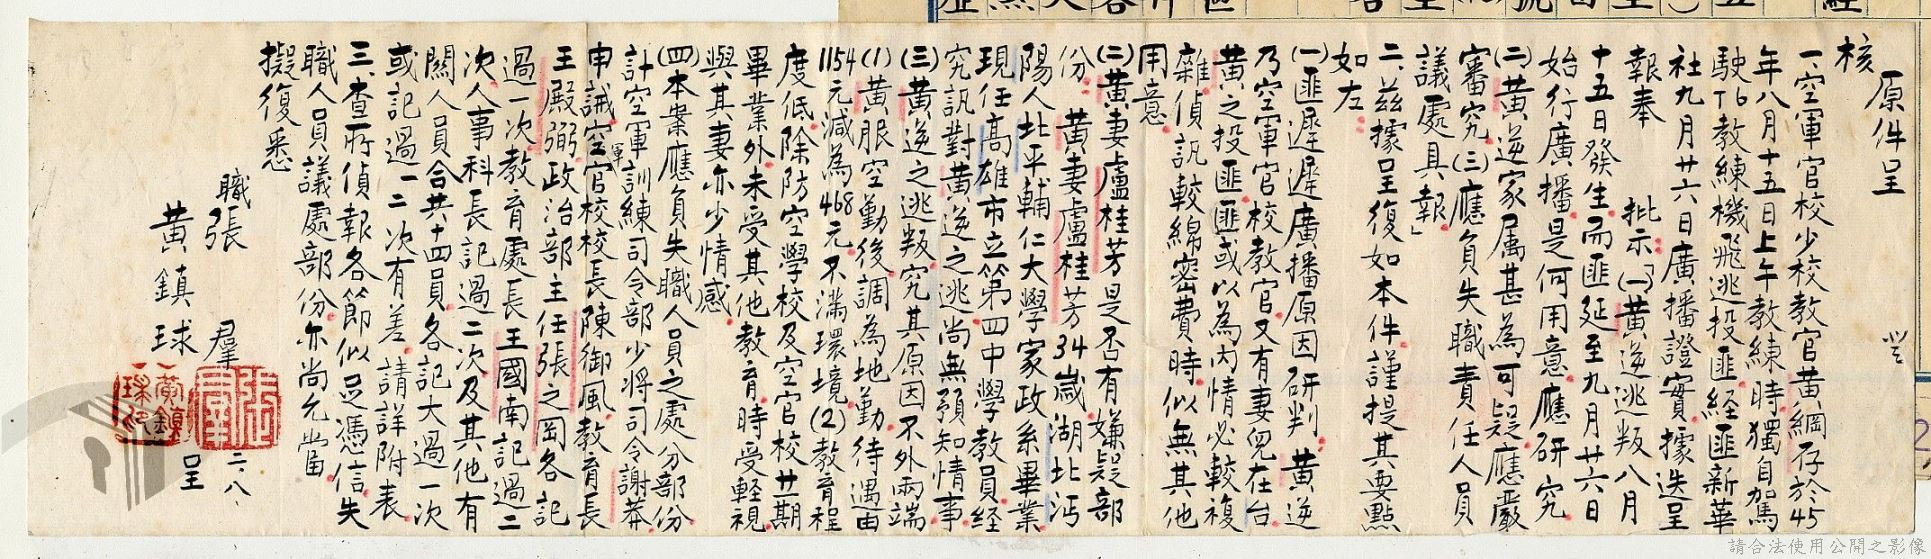 原件呈
核
一、空軍官校少校教官黃綱存於45
年八月十五日上午教練時獨自駕
駛T6教練機飛逃投匪經匪新華
社九月廿六日廣播證實據迭呈
報奉 批示「(一)黃逆逃叛八月
十五日發生而匪延至九月廿六日
始行廣播是何用意應研究
(二)黃逆家屬甚為可疑應嚴
審究(三)應負失職責任人員
議處具報」
二、茲據呈復如本件謹提其要點
如左
(一)匪遲遲廣播原因研判黃逆
乃空軍官校教官又有妻兒在台
黃之投匪匪或以為內情必較複
雜偵訊較綿密費時似無其他
用意
(二)黃妻盧桂芳是否有嫌疑部
份黃妻盧桂芳34歲湖北沔
陽人北平輔仁大學家政系畢業
現任高雄市立第四中學教員經
究訊對黃逆之逃尚無預知情事
(三)黃逆之逃叛究其原因不外兩端
(1)黃服空勤後調為地勤待遇由
1154元減為468元不滿環境(2)教育程
度低除防空學校及空官校廿一期
畢業外未受其他教育時受輕視
與其妻亦少情感
(四)本案應負失職人員之處分部份
計空軍訓練司令部少將司令謝莽
申誡空軍官校校長陳御風教育長
王殿弼政治部主任張之岡各記
過一次教育處長王國南記過二
次人事科長記過二次及其他有
關人員合共十四員各記大過一次
或記過一二次有差請詳附表
三、查所偵報各節似足憑信失
職人員議處部份亦尚允當
擬復悉
職張 羣
黃鎮球 呈
二、八、
請合法使用公開之影像